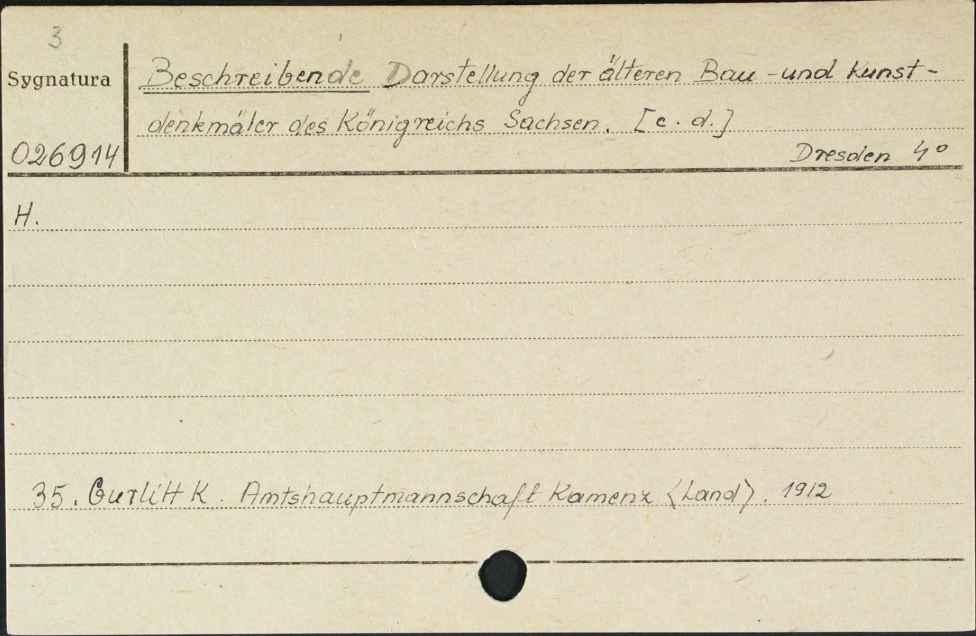 3
Sygnatura
Beschreibende Darstellung der älteren Bau -und Kunst-
denkmäler des Königreichs Sachsen. [c. d.]
026914
Dresden 4°
H.
35. Gurlitt K. Amtshauptmannschaft Kamenz <Land>. 1912